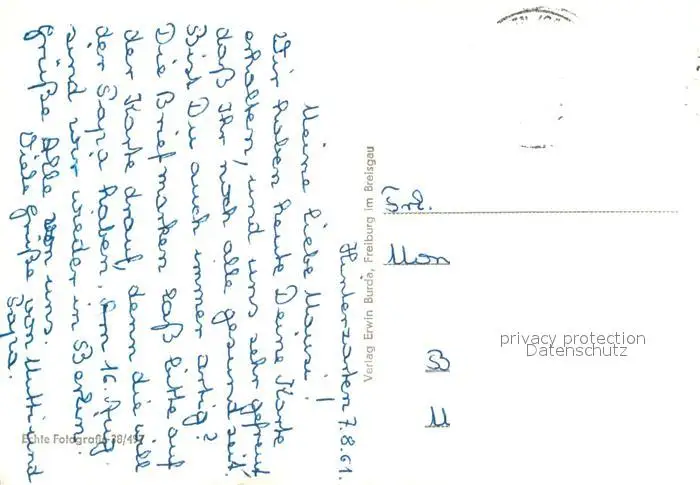 Hinterzarten 7.8.61.
Meine liebe Mausi!
Wir haben heute Deine Karte
erhalten, und uns sehr gefreut
daß Ihr noch alle gesund seit.
Bist Du auch immer artig?
Die Briefmarken laß bitte auf
der Karte drauf, denn die will
der Papa haben. Am 16. Aug.
sind wir wieder in
Grüße Alle von uns.
Viele Grüße von Mutti und
Papa.
Echte Fotografie 38/497
Verlag Erwin Burda, Freiburg im Breisgau
Frl.
Mon
B
M
privacy protection
Datenschutz